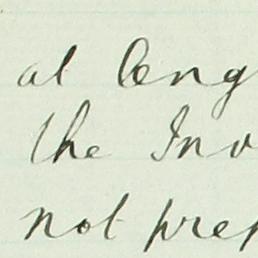 at leng
the Inv
not prep